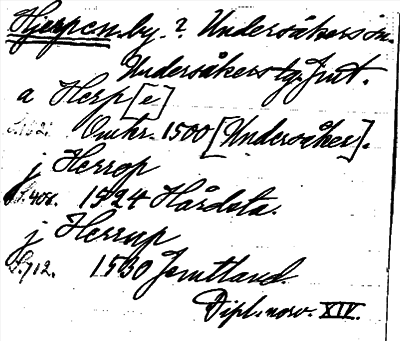 Hjerpen. by. ? Undersåkers sn.
Undersåkers tg. Jmt.
a Herp[e]
S. 162. Omkr. 1500 [Undersåker].
j Herrop
S. 408. 1524 Hårdsta.
j Herrup
S. 712. 1530 Jemtland.
Dipl. norv. XIV.